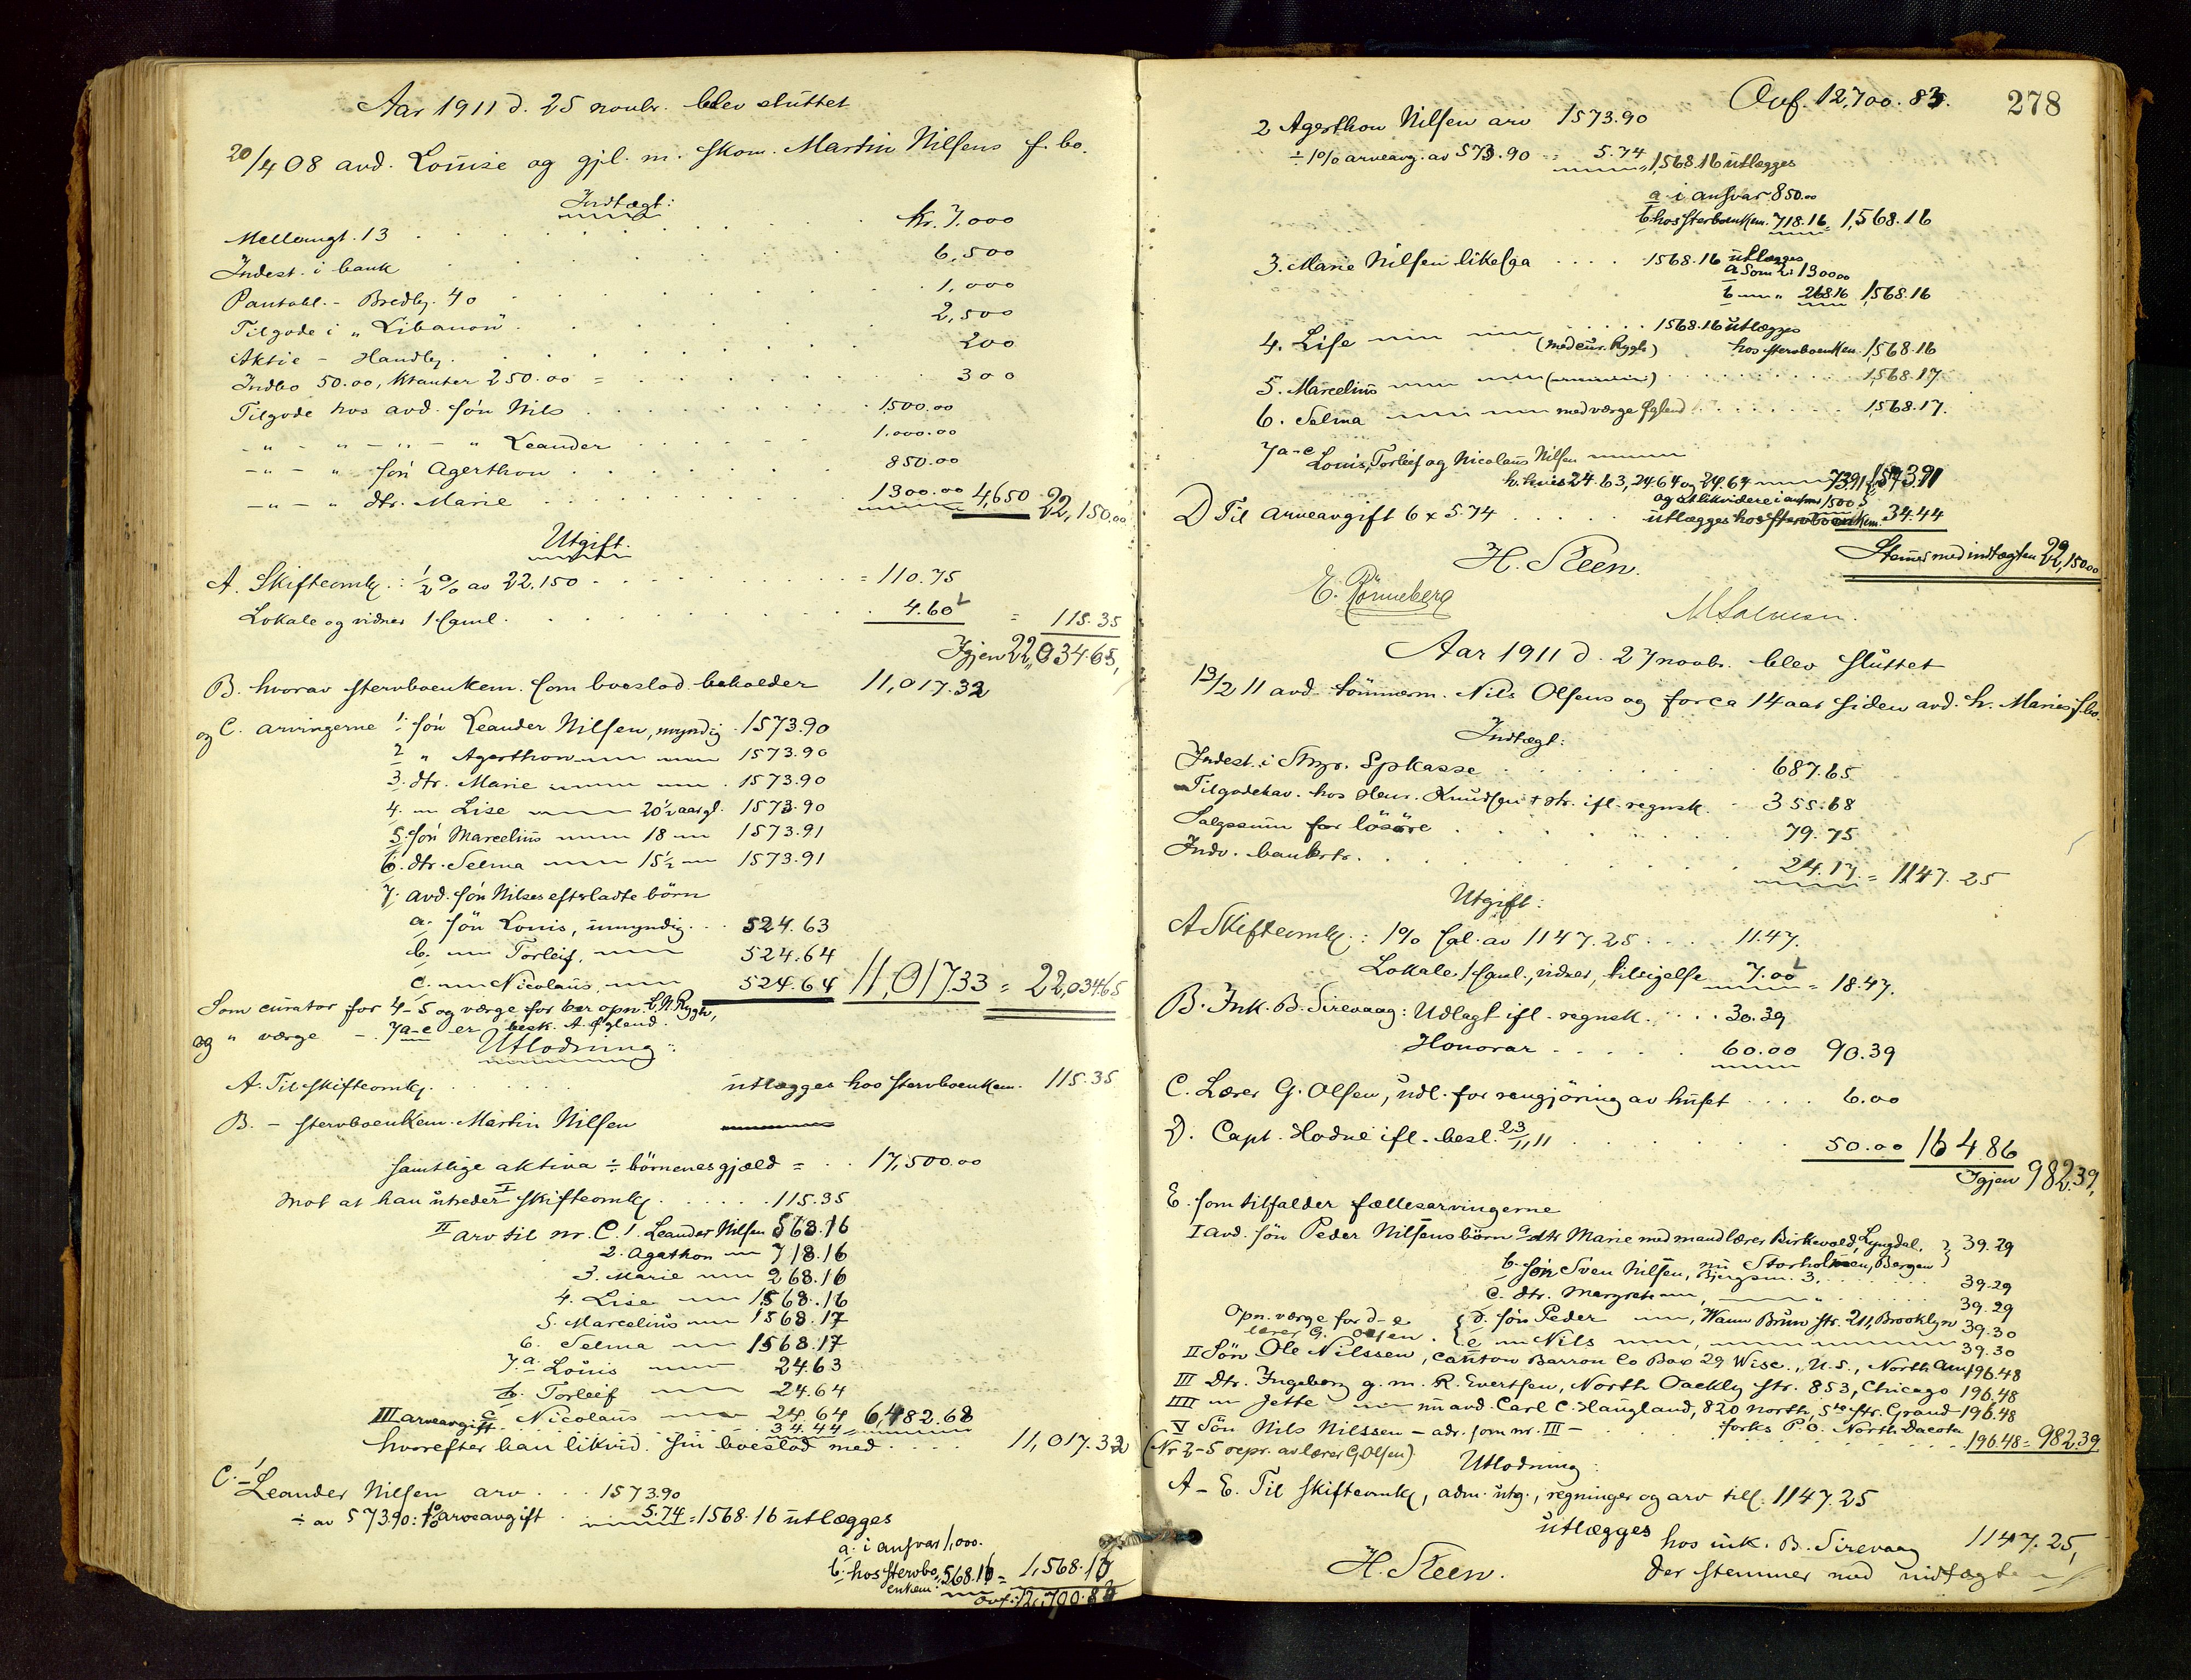 Aar 1911 d. 25 novbr. blev sluttet
20/4 08 avd. Louise og gjl. m. skom. Martin Nilsens f. bo.
Indtægt:
Mellemgt. 13 . . . . Kr. 7.000
Indest. i bank . . . . 6,500
Pantobl. - Bredbg. 40 . . . . 1,000
Tilgode i "Libanon" . . . . 2,500
Aktie - Handbg. . . . . 200
Indbo 50.00, Ktanter 250.00 = . . . . 300
Tilgode hos avd. søn Nils . . . . 1500.00
" - " - " - " Leander . . . . 1.000.00
- " - " søn Agerthon . . . . 850.00
- " - " dtr. Marie . . . . 1300.00 4,650 22,150.00
Utgift.
A. Skifteomk.: 1/2 % av 22,150 . . . . = 110.75
Lokale og vidner 1 saml. . . . . 4.60 = 115.35
Igjen 22,034.65,
B. hvorav stervboenkem. som boeslod beholder 11,017.32
og C. arvingerne 1. søn Leander Nilsen, myndig . 1573.90
2 " Agerthon 1573.90
3. dtr. Marie . 1573.90
4. Lise 20 1/2 aar gl. 1573.90
5. søn Marcelius 18 1573.91
6. dtr. Selma 15 1/2 1573.91
7. avd. søn Nilses efterladte börn
a. søn Louis, umyndig . . 524.63
b. Torleif, 524.64
c. Nicolaus, 524.64 11,017.33 = 22,034.65
Som curator for 4-5 og værge for 6 er opn. L. N. Rygh,
og " værge - . 7 a-c er besk. A. Øglend.
Utlodning:
A. Til skifteomk. . . . . utlægges hos stervboenkem. 115.35
B. - stervboenkem. Martin Nilsen
samtlige aktiva ÷ börnenes gjæld = . . 17,500.00
mot at han utreder I skifteomk. . . . . 115.35
II arv til nr. C. 1. Leander Nilsen 568.16
2. Agathon 718.16
3. Marie 268.16
4. Lise 1568.16
5. Marcelius 1568.17
6. Selma 1568.17
7. a. Louis 24.63
b. Torleif 24.64
c. Nicolaus 24.64
III arveavgift . . . . 34.44 6,482.68
hvorefter han likvid. sin boeslod med . . . . 11,017.32
C. 1 Leander Nilsen arv . . . 1573.90
÷ av 573.90: 1% arveavgift . 5.74 = 1568.16 utlægges
a. i ansvar 1,000.
b. hos stervbo- 568.16 = 1,568.16
enkem.
Ovf. 12,700.83
Ovf. 12,700.83. 278
2 Agerthon Nilsen arv 1573.90
÷ 1% arveavg. av 573.90 = 5.74 = 1,568.16 utlægges
a. i ansvar 850.00
b. hos stervboenkem. 718.16 = 1,568.16
3. Marie Nilsen likesaa . . . . 1568.16 utlægges
a som 2: 1300.00
b " 268.16 1,568.16
4. Lise . . . . 1568.16 utlægges
(med cur. Rygh) hos stervboenkem. 1,568.16
5. Marcelius . . . . 1,568.17
6. Selma med værge Øglend . . . . 1,568.17.
7 a-c Louis, Torleif og Nicolaus Nilsen
h. hvis 24.63, 24.64 og 24.64 73.91 1,573.91
og at likvidere i ansvar 1500
D Til arveavgift 6 x 5.74 . . . . utlægges hos stervboenkem. 34.44
Stemmer med indtægten 22,150.00
H. Steen.
E. Rönneberg
M Salvesen.
Aar 1911 d. 27 novbr. blev sluttet
13/2 11 avd. tömmerm. Nils Olsens og for ca 14 aar siden avd. h. Maries f. bo.
Indtægt:
Indest. i Stvgr. Spkasse . . . . 687.65
Tilgodehav. hos Henr. Knudsen + str. ifl. regnsk. . 355.68
Salgssum for lösöre . . . . 79.75
Indv. bankrtr. . . . . 24.17 = 1147.25
Utgift:
A Skifteomk.: 1% sal. av 1147.25 . . . . 11.47.
Lokale, 1 saml., vidner, tilsigelse 7.00 = 18.47.
B. Ink. B. Sirevaag: Udlagt ifl. regnsk. . . . . 30.39
Honorar . . . . 60.00 90.39
C. Lærer G. Olsen, udl. for rengjöring av huset . . . . 6.00
D. Capt. Hodne ifl. besl. 23/11 11 . . . . 50.00 164.86
Igjen 982.39,
E. som tilfalder fællesarvingerne
I avd. søn Peder Nilsens börn a. dtr Marie med mand lærer Birkevold, Lyngdal. 39.29
b. søn Sven Nilsen, nu Storholmen, Bergen
Bjergsm. 3, . . . . 39.29
c. dtr. Margrete . . . . 39.29
Opn. værge for d-e { d. søn Peder , Wann Brun str. 211, Brooklyn 39.30
lærer G. Olsen. { e Nils 39.30
II Sön Ole Nilssen, canton Barron Co Box 29 Wisc., U.S., North Am. 196.48
III Dtr. Ingeborg g. m. R. Evertsen, North Oackly str. 853, Chicago 196.48
IIII Jette nu avd. Carl C. Haugland, 820 North, 5te str. Grand 196.48
forks P.O. North Dacota
V Sön Nils Nilssen - adr. som nr. III - . . . . 196.48 = 982.39
(Nr 2-5 repr. av lærer G. Olsen)
Utlodning:
A - E. Til skifteomk., adm. utg., regninger og arv tils. 1147.25
utlægges hos ink. B. Sirevaag 1147.25,
der stemmer med indtægten
H. Steen.